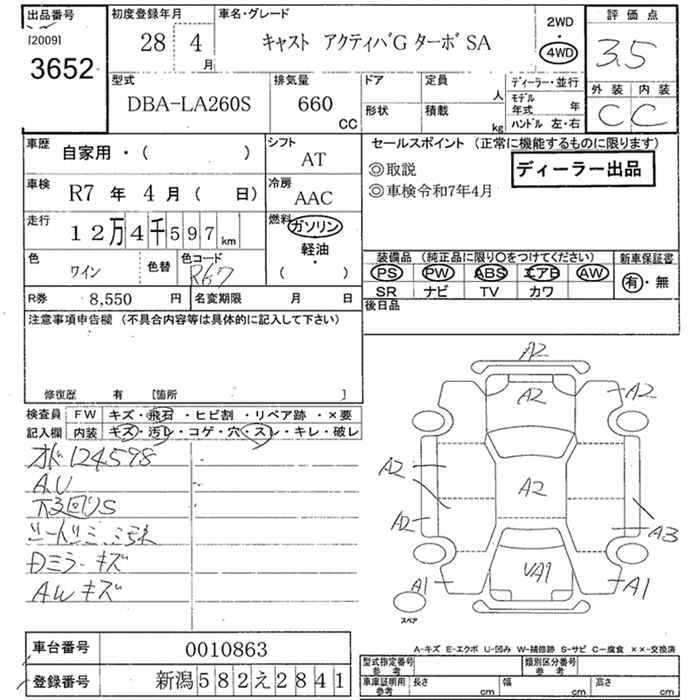 出品番号
[2009]
3652
初度登録年月
28 4
月
車名・グレード
キャスト アクティバG ターボ SA
2WD
・
4WD
評価点
3.5
外装 内装
C C
型式
DBA-LA260S
排気量
660
CC
ドア
形状
定員
人
積載
kg
ディーラー・並行
モデル
年式 年
ハンドル 左・右
車歴
自家用・( )
シフト
AT
車検
R7 年 4 月 ( 日)
冷房
AAC
走行
12万4千597km
燃料
ガソリン
軽油・
( )
色
ワイン
色替
色コード
R67
R券 8,550 円
名変期限 月 日
セールスポイント (正常に機能するものに限ります)
◎取説
◎車検令和7年4月
ディーラー出品
装備品 (純正品に限り○をつけてください)
PS PW ABS エアB AW
SR ナビ TV カワ
新車保証書
有・無
後日品
注意事項申告欄 (不具合内容等は具体的に記入して下さい)
修復歴 有 [箇所 ]
検査員
記入欄
FW キズ・飛石・ヒビ割・リペア跡・×要
内装 キズ・汚レ・コゲ・穴・スレ・キレ・破レ
124598
A.U
下回りS
Dミラーキズ
AWキズ
A2
A2
A2
A2
A2
A2
A3
A1
VA1
A1
スペア
A-キズ E-エクボ U-凹み W-補修跡 S-サビ C-腐食 ××-交換済
車台番号 0010863
登録番号 新潟582え2841
型式指定番号
参考
類別区分番号
参考
車庫証明用
参考
長さ cm
幅 cm
高さ cm